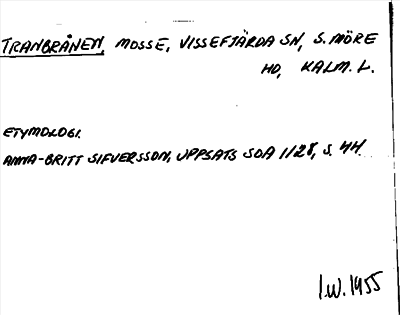 TRANBRÅNEN, MOSSE, VISSEFJÄRDA SN, S. MÖRE
HD, KALM. L.
ETYMOLOGI.
ANNA-BRITT SIFVERSSON, UPPSATS SOA 1128, S. 44.
I.W. 1955